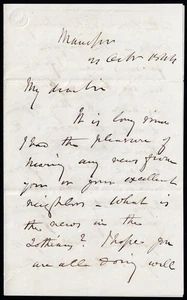 21 Octbr 1844
My dear Sir
It is long since
I had the pleasure of
hearing any news from
you or your excellent
neighbors - What is
the news in the
Lothians? I hope you
are all doing well